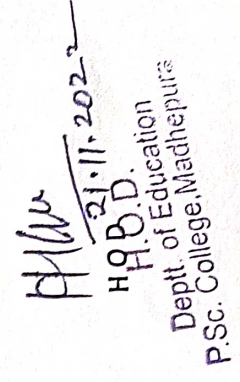 21.11.2022
H.O.D.
H.B.D.
Deptt. of Education
P.Sc. College, Madhepura